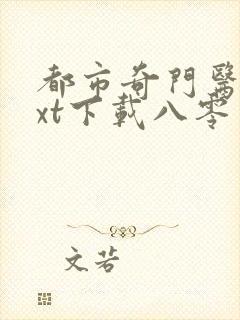 都市奇門醫
xt下載八零
文若